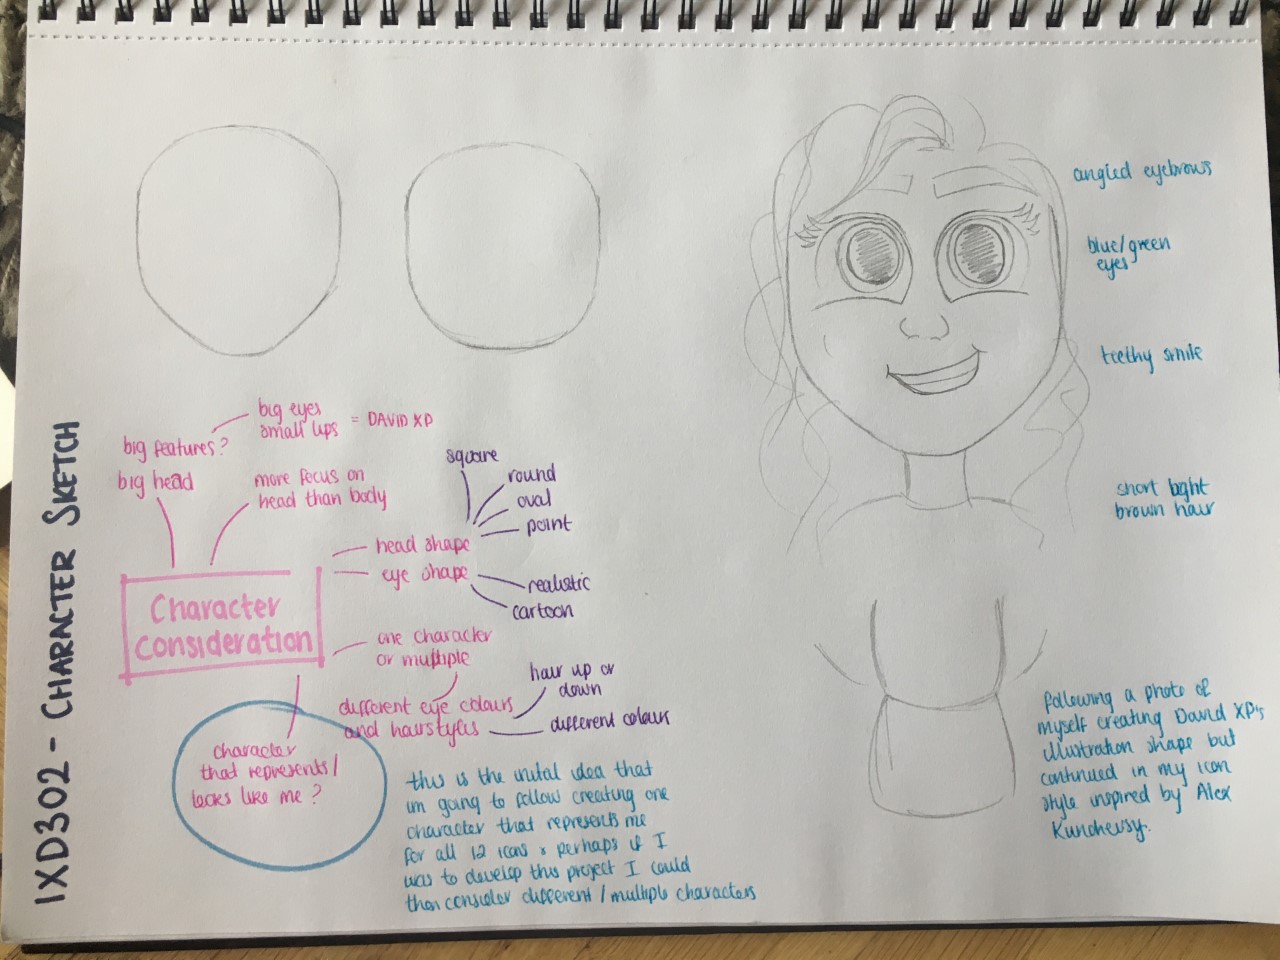 IXD302 - CHARACTER SKETCH
big features?
big eyes
small lips
= DAVID XP
big head
more focus on
head than body
Character
Consideration
head shape
square
round
oval
point
eye shape
realistic
cartoon
one character
or multiple
different eye colours
and hairstyles
hair up or
down
different colours
character
that represents/
looks like me?
this is the inital idea that
im going to follow creating one
character that represents me
for all 12 icons & perhaps if I
was to develop this project I could
then consider different / multiple characters
angled eyebrows
blue/green
eyes
teethy smile
short light
brown hair
following a photo of
myself creating David XP's
illustration shape but
continued in my icon
style inspired by Alex